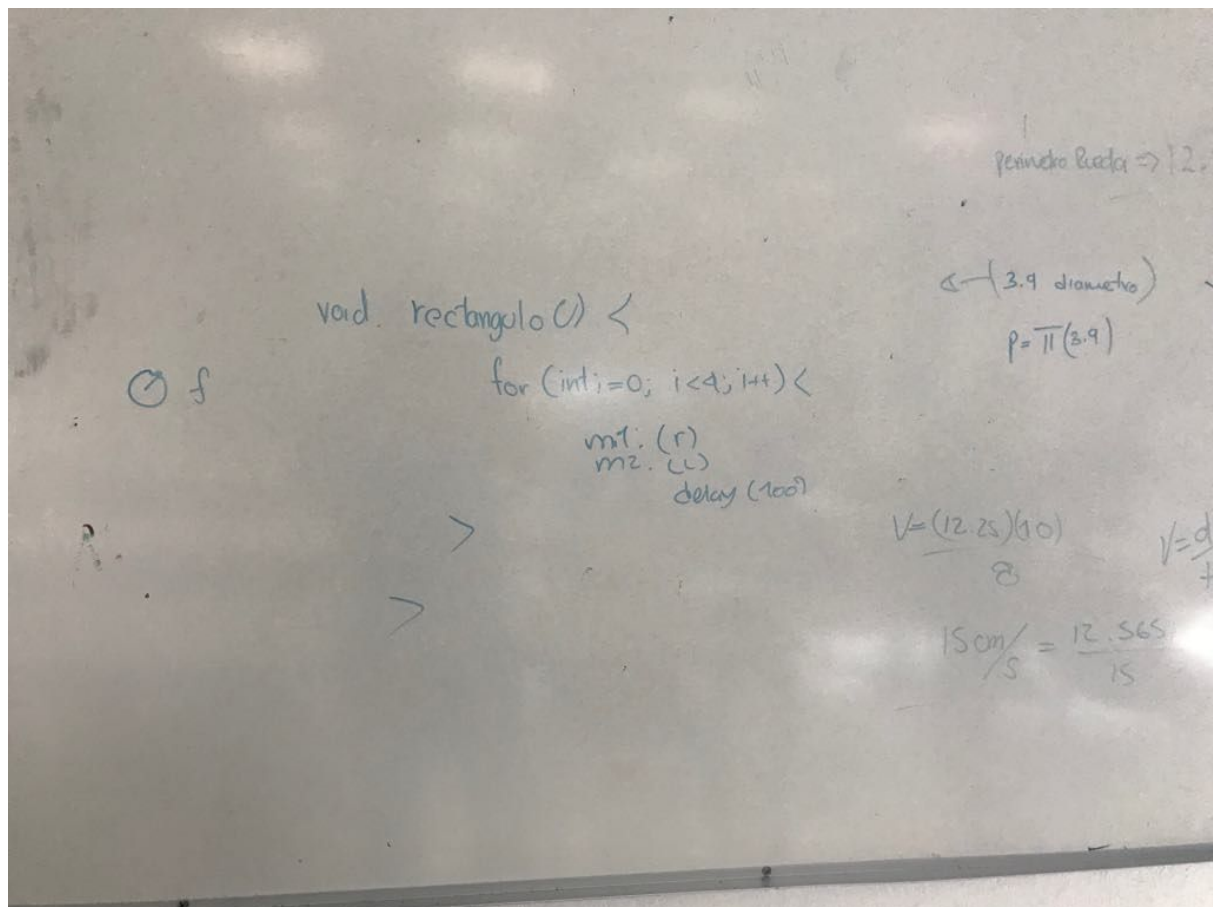 perimetro Rueda => 12.
(3.9 diametro)
p = π(3.9)
void. rectangulo() <
for (int i=0; i<4; i++) <
m1. (r)
m2. (L)
delay (100)
>
>
f
V = (12.25)(10)
8
V = d
t
15 cm/s = 12.565
15